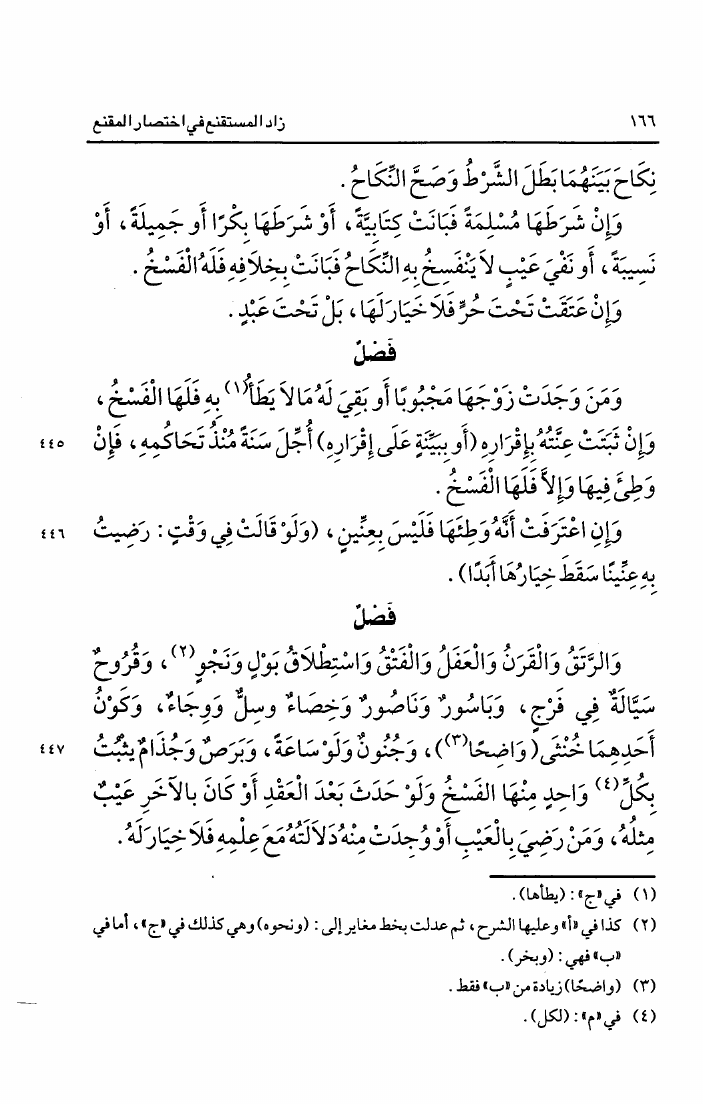 ١٦٦ زاد المستقنع في اختصار المقنع
نِكَاحَ بَيْنَهُمَا بَطَلَ الشَّرْطُ وَصَحَّ النِّكَاحُ .
وَإِنْ شَرَطَهَا مُسْلِمَةً فَبَانَتْ كِتَابِيَّةً ، أَوْ شَرَطَهَا بِكْرًا أو جَمِيلَةً ، أَوْ
نَسِيبَةً ، أَو نَفْيَ عَيْبٍ لاَ يَنْفَسِخُ بِهِ النِّكَاحُ فَبَانَتْ بِخِلاَفِهِ فَلَهُ الْفَسْخُ .
وَإِنْ عَتَقَتْ تَحْتَ حُرٍّ فَلاَ خَيَارَ لَهَا ، بَلْ تَحْتَ عَبْدٍ .
فَصْلٌ
وَمَنَ وَجَدَتْ زَوْجَهَا مَجْبُوبًا أَو بَقِيَ لَهُ مَا لاَ يَطَأُ(١) بِهِ فَلَهَا الْفَسْخُ ،
وَإِنْ ثَبَتَتْ عِنَّتُهُ بِإِقْرَارِهِ (أَو بِبَيِّنَةٍ عَلَى إِقْرَارِهِ) أُجِّلَ سَنَةً مُنْذُ تَحَاكُمِهِ ، فَإِنْ ٤٤٥
وَطِئَ فِيهَا وَإِلاَّ فَلَهَا الْفَسْخُ .
وَإِنِ اعْتَرَفَتْ أَنَّهُ وَطِئَهَا فَلَيْسَ بِعِنِّينٍ ، (وَلَوْ قَالَتْ فِي وَقْتٍ : رَضِيتُ ٤٤٦
بِهِ عِنِّينًا سَقَطَ خِيَارُهَا أَبَدًا) .
فَصْلٌ
وَالرَّتَقُ وَالْقَرَنُ وَالْعَفَلُ وَالْفَتْقُ وَاسْتِطْلاَقُ بَوْلٍ وَنَجْوٍ(٢) ، وَقُرُوحٌ
سَيَّالَةٌ فِي فَرْجٍ ، وَبَاسُورٌ وَنَاصُورٌ وَخِصَاءٌ وسِلٌّ وَوِجَاءٌ ، وَكَوْنُ
أَحَدِهِمَا خُنْثَى (وَاضِحًا(٣)) ، وَجُنُونٌ وَلَوْ سَاعَةً ، وَبَرَصٌ وَجُذَامٌ يَثْبُتُ ٤٤٧
بِكُلِّ(٤) وَاحِدٍ مِنْهَا الفَسْخُ وَلَوْ حَدَثَ بَعْدَ الْعَقْدِ أَوْ كَانَ بالآخَرِ عَيْبٌ
مِثْلُهُ ، وَمَنْ رَضِيَ بِالْعَيْبِ أَوْ وُجِدَتْ مِنْهُ دَلاَلَتُهُ مَعَ عِلْمِهِ فَلاَ خِيَارَ لَهُ .
(١) في «ج» : (يطأها) .
(٢) كذا في «أ» وعليها الشرح ، ثم عدلت بخط مغاير إلى : (ونحوه) وهي كذلك في «ج» ، أما في
«ب» فهي : (وبخر) .
(٣) (واضحًا) زيادة من «ب» فقط .
(٤) في «م» : (لكل) .